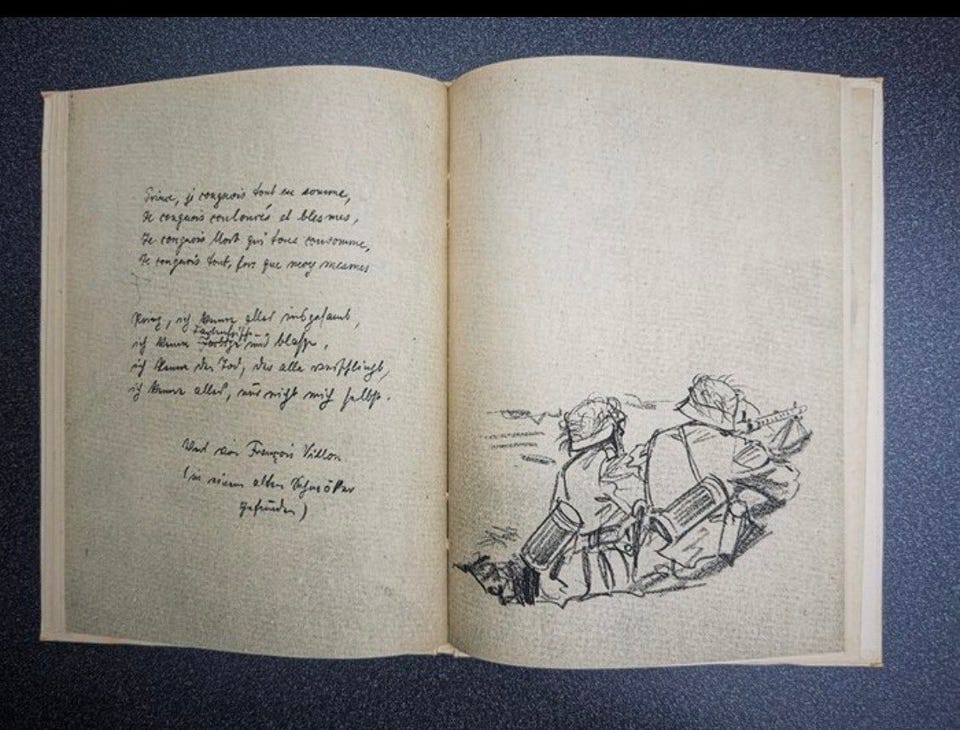 Prince, je congnois tout en somme,
Je congnois coulourés et blesmes,
Je congnois Mort qui tous consomme,
Je congnois tout, fors que moy mesmes
ich kenne alles insgesamt,
ich kenne und blasse,
ich kenne den Tod, der alle verschlingt,
ich kenne alles, nur nicht mich selbst.
von François Villon
(in einem alten Schmöker
gefunden)